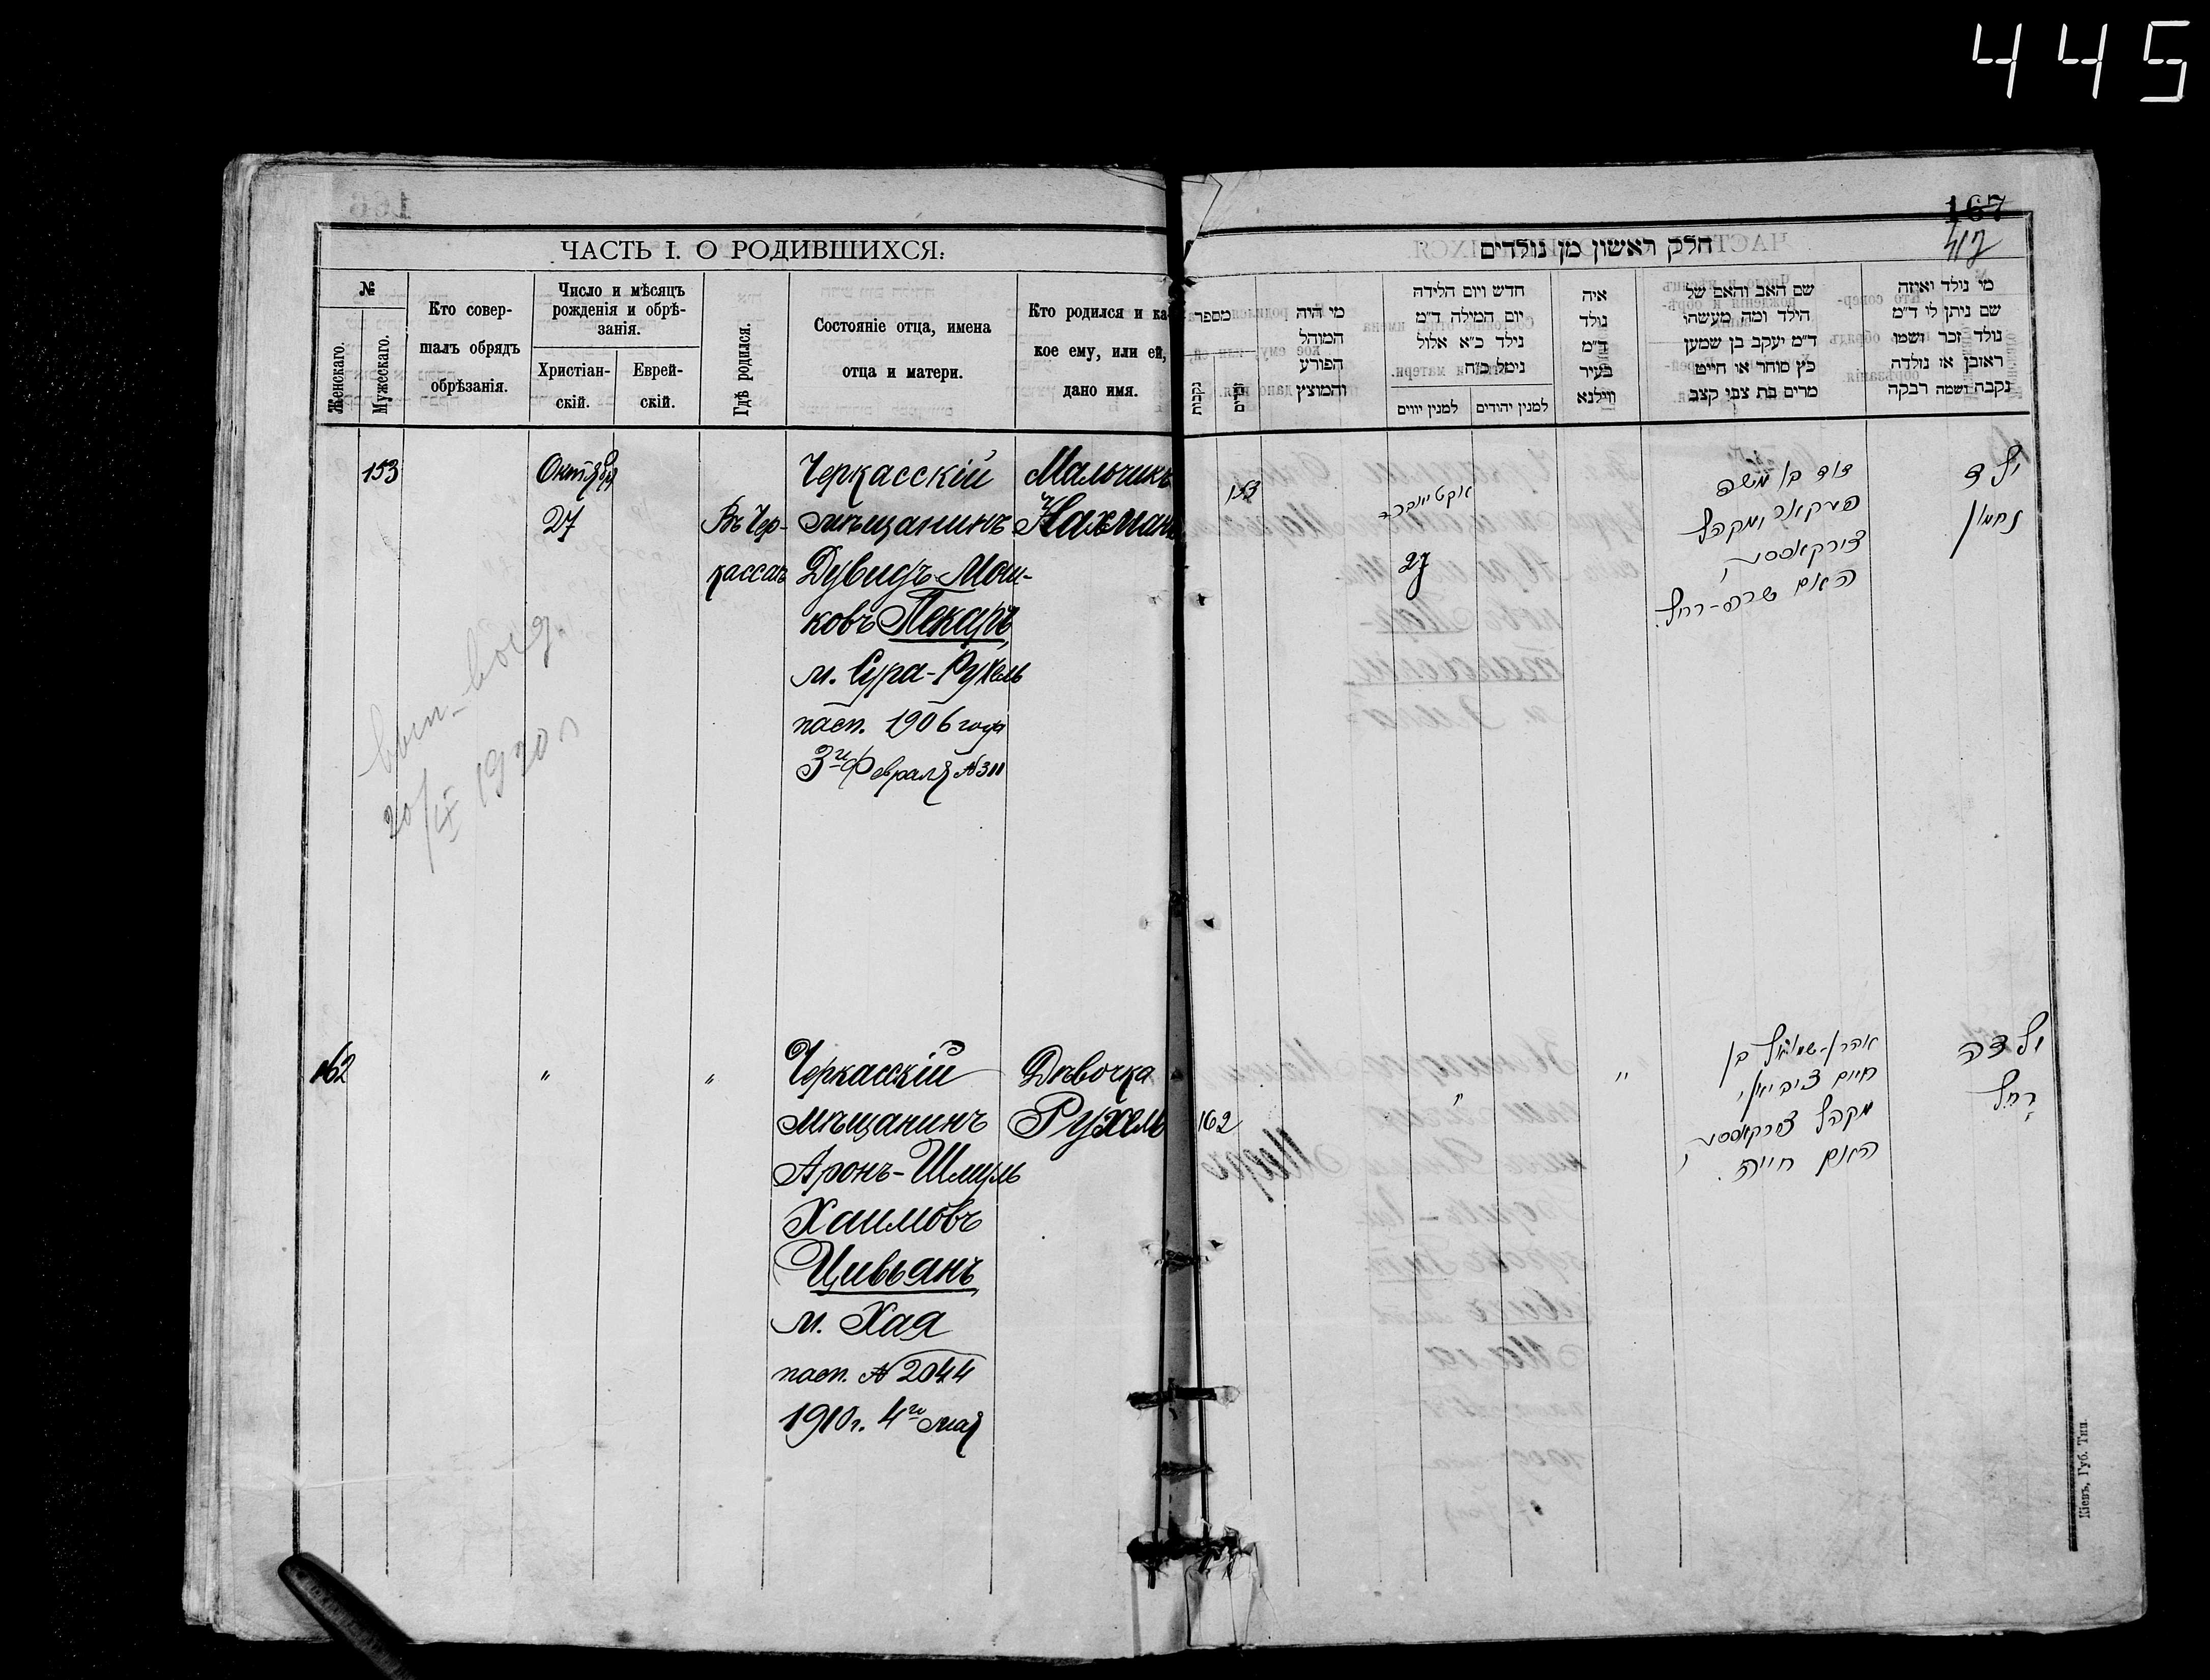 445
ЧАСТЬ I. О РОДИВШИХСЯ.
№
Женскаго.
Мужескаго.
Кто совер-
шалъ обрядъ
обрѣзанія.
Число и мѣсяцъ
рожденія и обрѣ-
занія.
Христіан-
скій.
Еврей-
скій.
Гдѣ родился.
Состояніе отца, имена
отца и матери.
Кто родился и ка-
кое ему, или ей,
дано имя.
153
Октября
27
Въ Чер-
кассахъ
Черкасскій
мѣщанинъ
Дувидъ Мош-
ковъ Пекарь,
м. Сура-Рухель
пасп. 1906 года
3го Февраля №311
Мальчикъ
Нахманъ
20/IX 1920 г
162
"
"
Черкасскій
мѣщанинъ
Аронъ-Шмуль
Хаимовъ
Цивьянъ,
м. Хая
пасп. № 2044
1910г. 4го мая
Дѣвочка
Рухель
167
42
חלק ראשון מן נולדים
מי נולד ואיזה
שם ניתן לו ד״מ
נולד זכר ושמו
ראובן או נולדה
נקבה ושמה רבקה
שם האב והאם של
הילד ומה מעשהו
ד״מ יעקב בן שמעון
כץ סוחר או חייט
מרים בת צבי קצב
איה
נולד
ד״מ
בעיר
ווילנא
חדש ויום הלידה
יום המילה ד״מ
נילד כ״א אלול
נימל כ״ח
למנין יהודים
למנין יונים
מי היה
המוהל
הפורע
והמוצץ
מספר
זכרים
נקבות
ילד
נחמן
דוד בן משה
פעקאר ומקהל
צירקאססי
האם שרה-רחל.
אקטיאבר
27
153
ילדה
רחל
אהרן-שמואל בן
חיים ציוויאן,
מקהל צירקאססי
האם חייה.
"
"
162
Кіевъ, Губ. Тип.